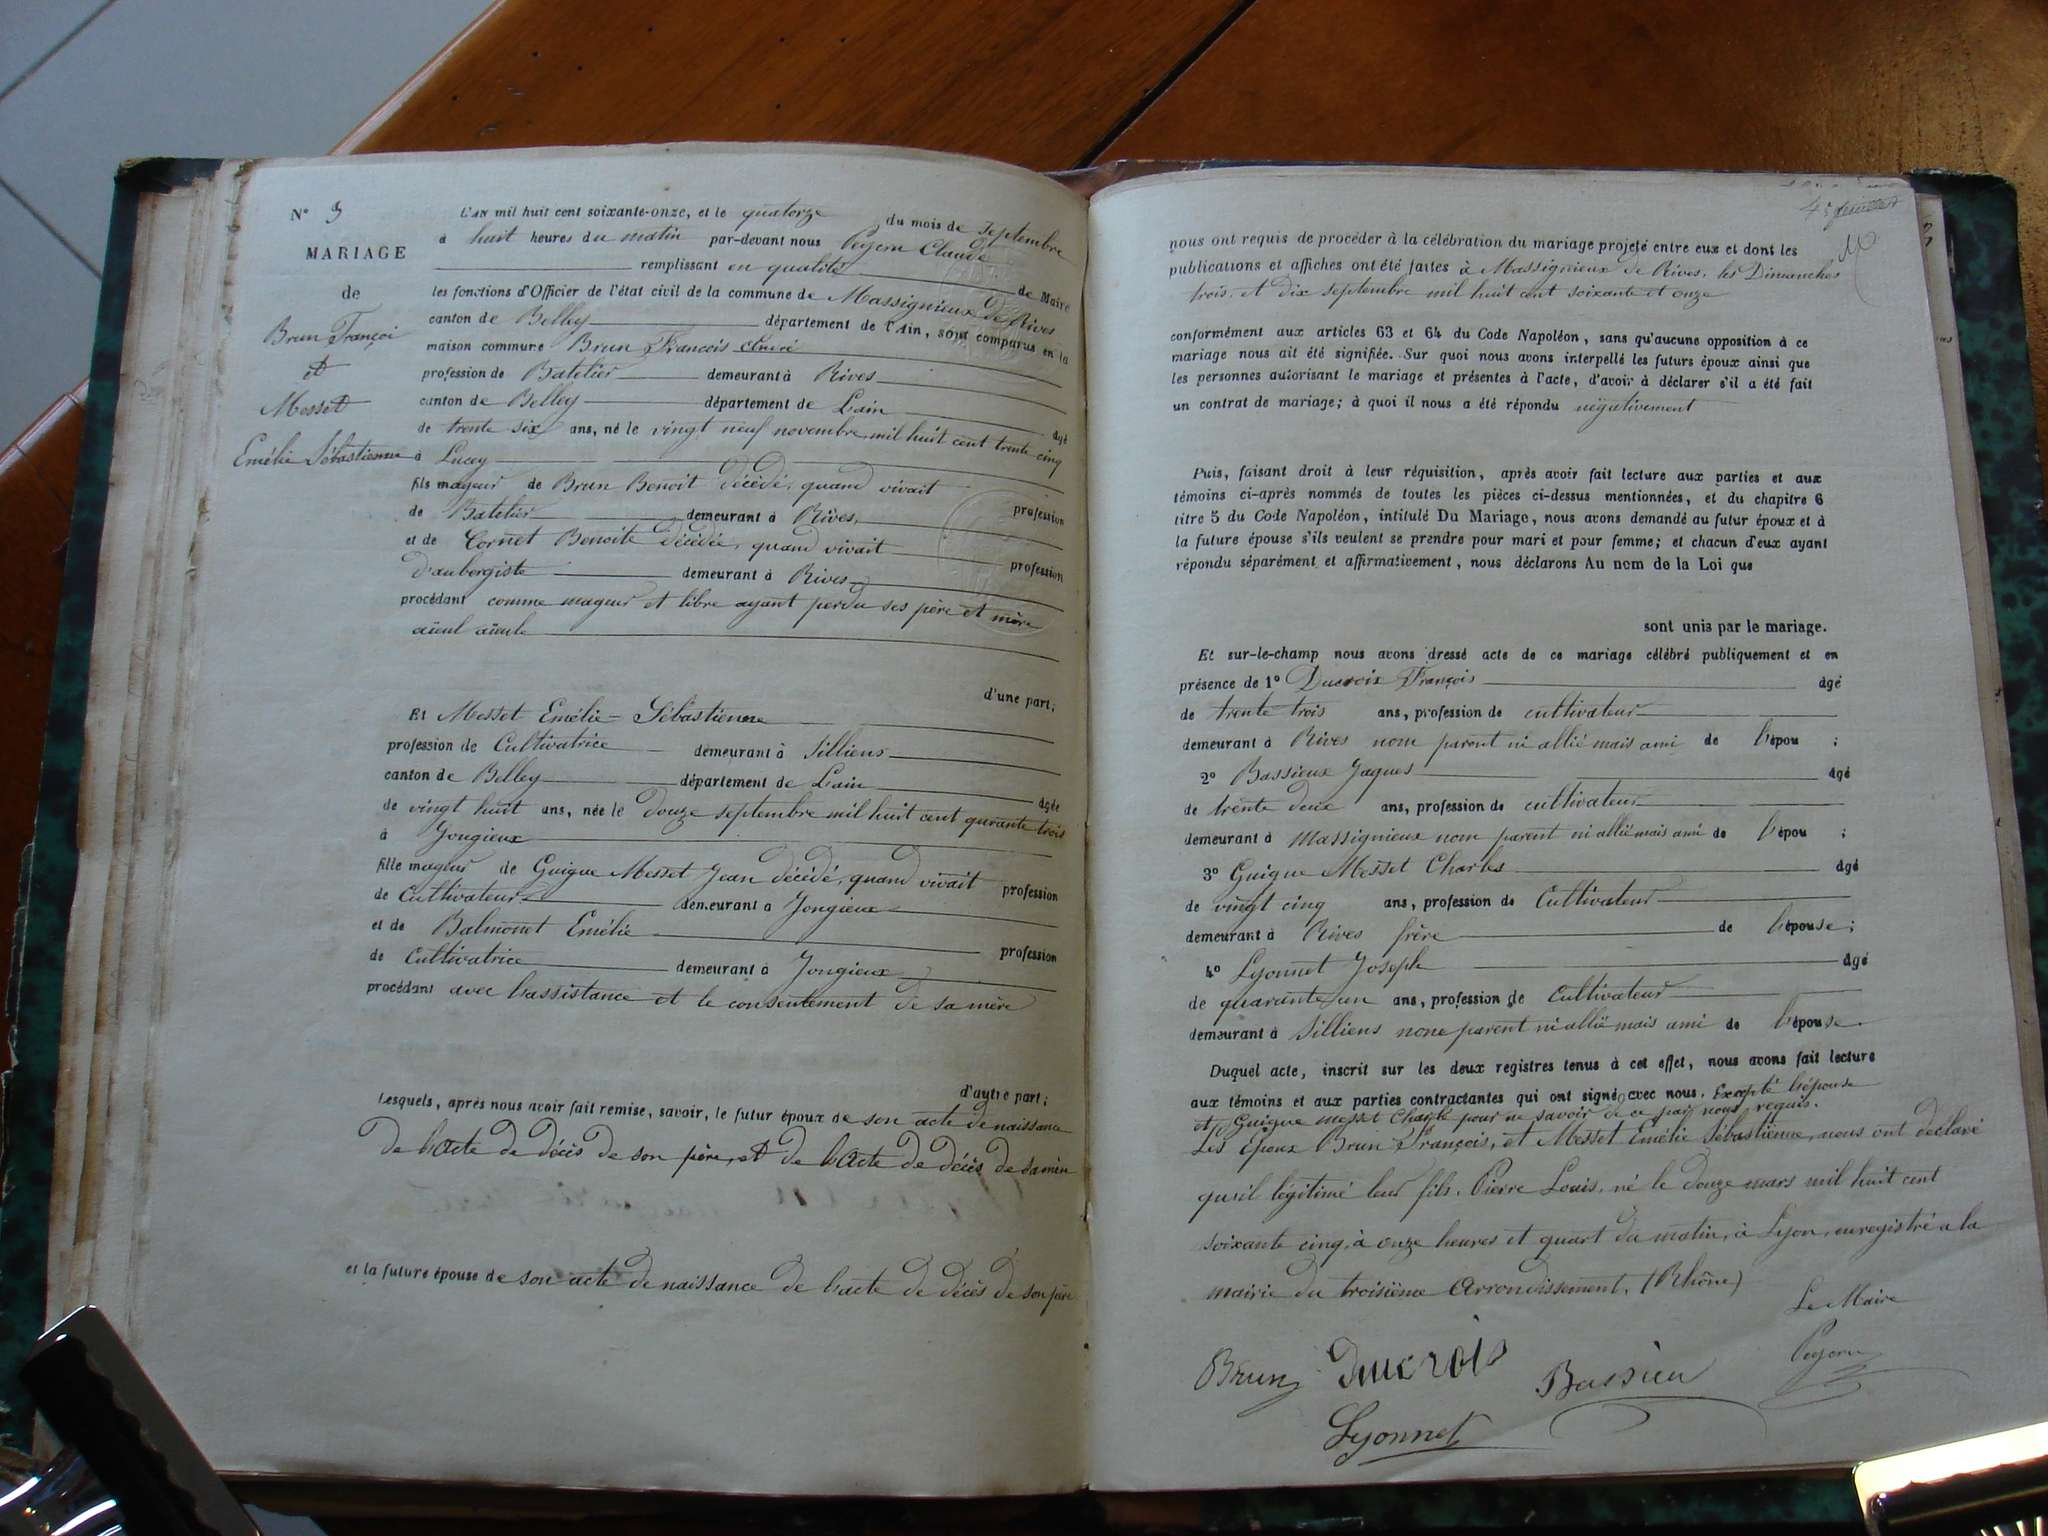 N° 3
MARIAGE
de
Brun Françoi
et
Messet
Emélie Sébastienne
L'AN mil huit cent soixante-onze, et le quatorze du mois de Septembre
à huit heures du matin par-devant nous Peysru Claude
remplissant en qualité de Maire
les fonctions d'Officier de l'état civil de la commune de Massignieux de Rives
canton de Belley département de l'Ain, sont comparus en la
maison commune Brun François
profession de Batelier demeurant à Rives
canton de Belley département de Lain âgé
de trente six ans, né le vingt neuf novembre mil huit cent trente cinq
à Lucey
fils mageur de Brun Benoit décédé, quand vivait profession
de Batelier demeurant à Rives,
et de Cornet Benoite décédée, quand vivait profession
d'aubergiste demeurant à Rives
procédant comme mageur et libre ayant perdu ses père et mère
aïeul aïeule
d'une part;
Et Messet Emélie-Sébastienne
profession de Cultivatrice demeurant à Silliens
canton de Belley département de Lain âgée
de vingt huit ans, née le douze septembre mil huit cent qurante trois
à Jongieux
fille mageur de Guigue Messet Jean décédé, quand vivait profession
de Cultivateur demeurant à Jongieux
et de Balmonet Emélie profession
de Cultivatrice demeurant à Jongieux
procédant avec l'assistance et le consentement de sa mère
d'autre part;
Lesquels, après nous avoir fait remise, savoir, le futur époux de son acte de naissance
de l'acte de décès de son père, et de l'acte de décès de sa mère
et la future épouse de son acte de naissance de l'acte de décès de son père
4e feuillet
nous ont requis de procéder à la célébration du mariage projeté entre eux et dont les
publications et affiches ont été faites à Massignieux de Rives, les Dimanches
trois, et dix septembre mil huit cent soixante et onze
conformément aux articles 63 et 64 du Code Napoléon, sans qu'aucune opposition à ce
mariage nous ait été signifiée. Sur quoi nous avons interpellé les futurs époux ainsi que
les personnes autorisant le mariage et présentes à l'acte, d'avoir à déclarer s'il a été fait
un contrat de mariage; à quoi il nous a été répondu négativement
Puis, faisant droit à leur réquisition, après avoir fait lecture aux parties et aux
témoins ci-après nommés de toutes les pièces ci-dessus mentionnées, et du chapitre 6
titre 5 du Code Napoléon, intitulé Du Mariage, nous avons demandé au futur époux et à
la future épouse s'ils veulent se prendre pour mari et pour femme; et chacun d'eux ayant
répondu séparément et affirmativement, nous déclarons Au nom de la Loi que
sont unis par le mariage.
Et sur-le-champ nous avons dressé acte de ce mariage célébré publiquement et en
présence de 1° Ducroix François âgé
de trente trois ans, profession de cultivateur
demeurant à Rives nom parent ni allié mais ami de l'épou ;
2° Bassieux Jaques âgé
de trente deux ans, profession de cultivateur
demeurant à Massignieux nom parent ni allié mais ami de l'épou ;
3° Guigue Messet Charles âgé
de vingt cinq ans, profession de Cultivateur
demeurant à Rives frère de l'épouse;
4° Lyonnet Joseph âgé
de quarante un ans, profession de Cultivateur
demeurant à Silliens none parent ni allié mais ami de l'épouse
Duquel acte, inscrit sur les deux registres tenus à cet effet, nous avons fait lecture
aux témoins et aux parties contractantes qui ont signé avec nous. Excepté l'épouse
et Guigue messet Charle pour ne savoir de ce par nous requis.
Les Epoux Brun François, et Messet Emélie Sébastienne, nous ont déclaré
qu'il légitimé leur fils. Pierre Louis, né le douze mars mil huit cent
soixante cinq, à onze heures et quart du matin, à Lyon, enregistré a la
mairie du troisième Arrondissement, (Rhône)
Le Maire
Brun Ducrois Bassieu
Lyonnet